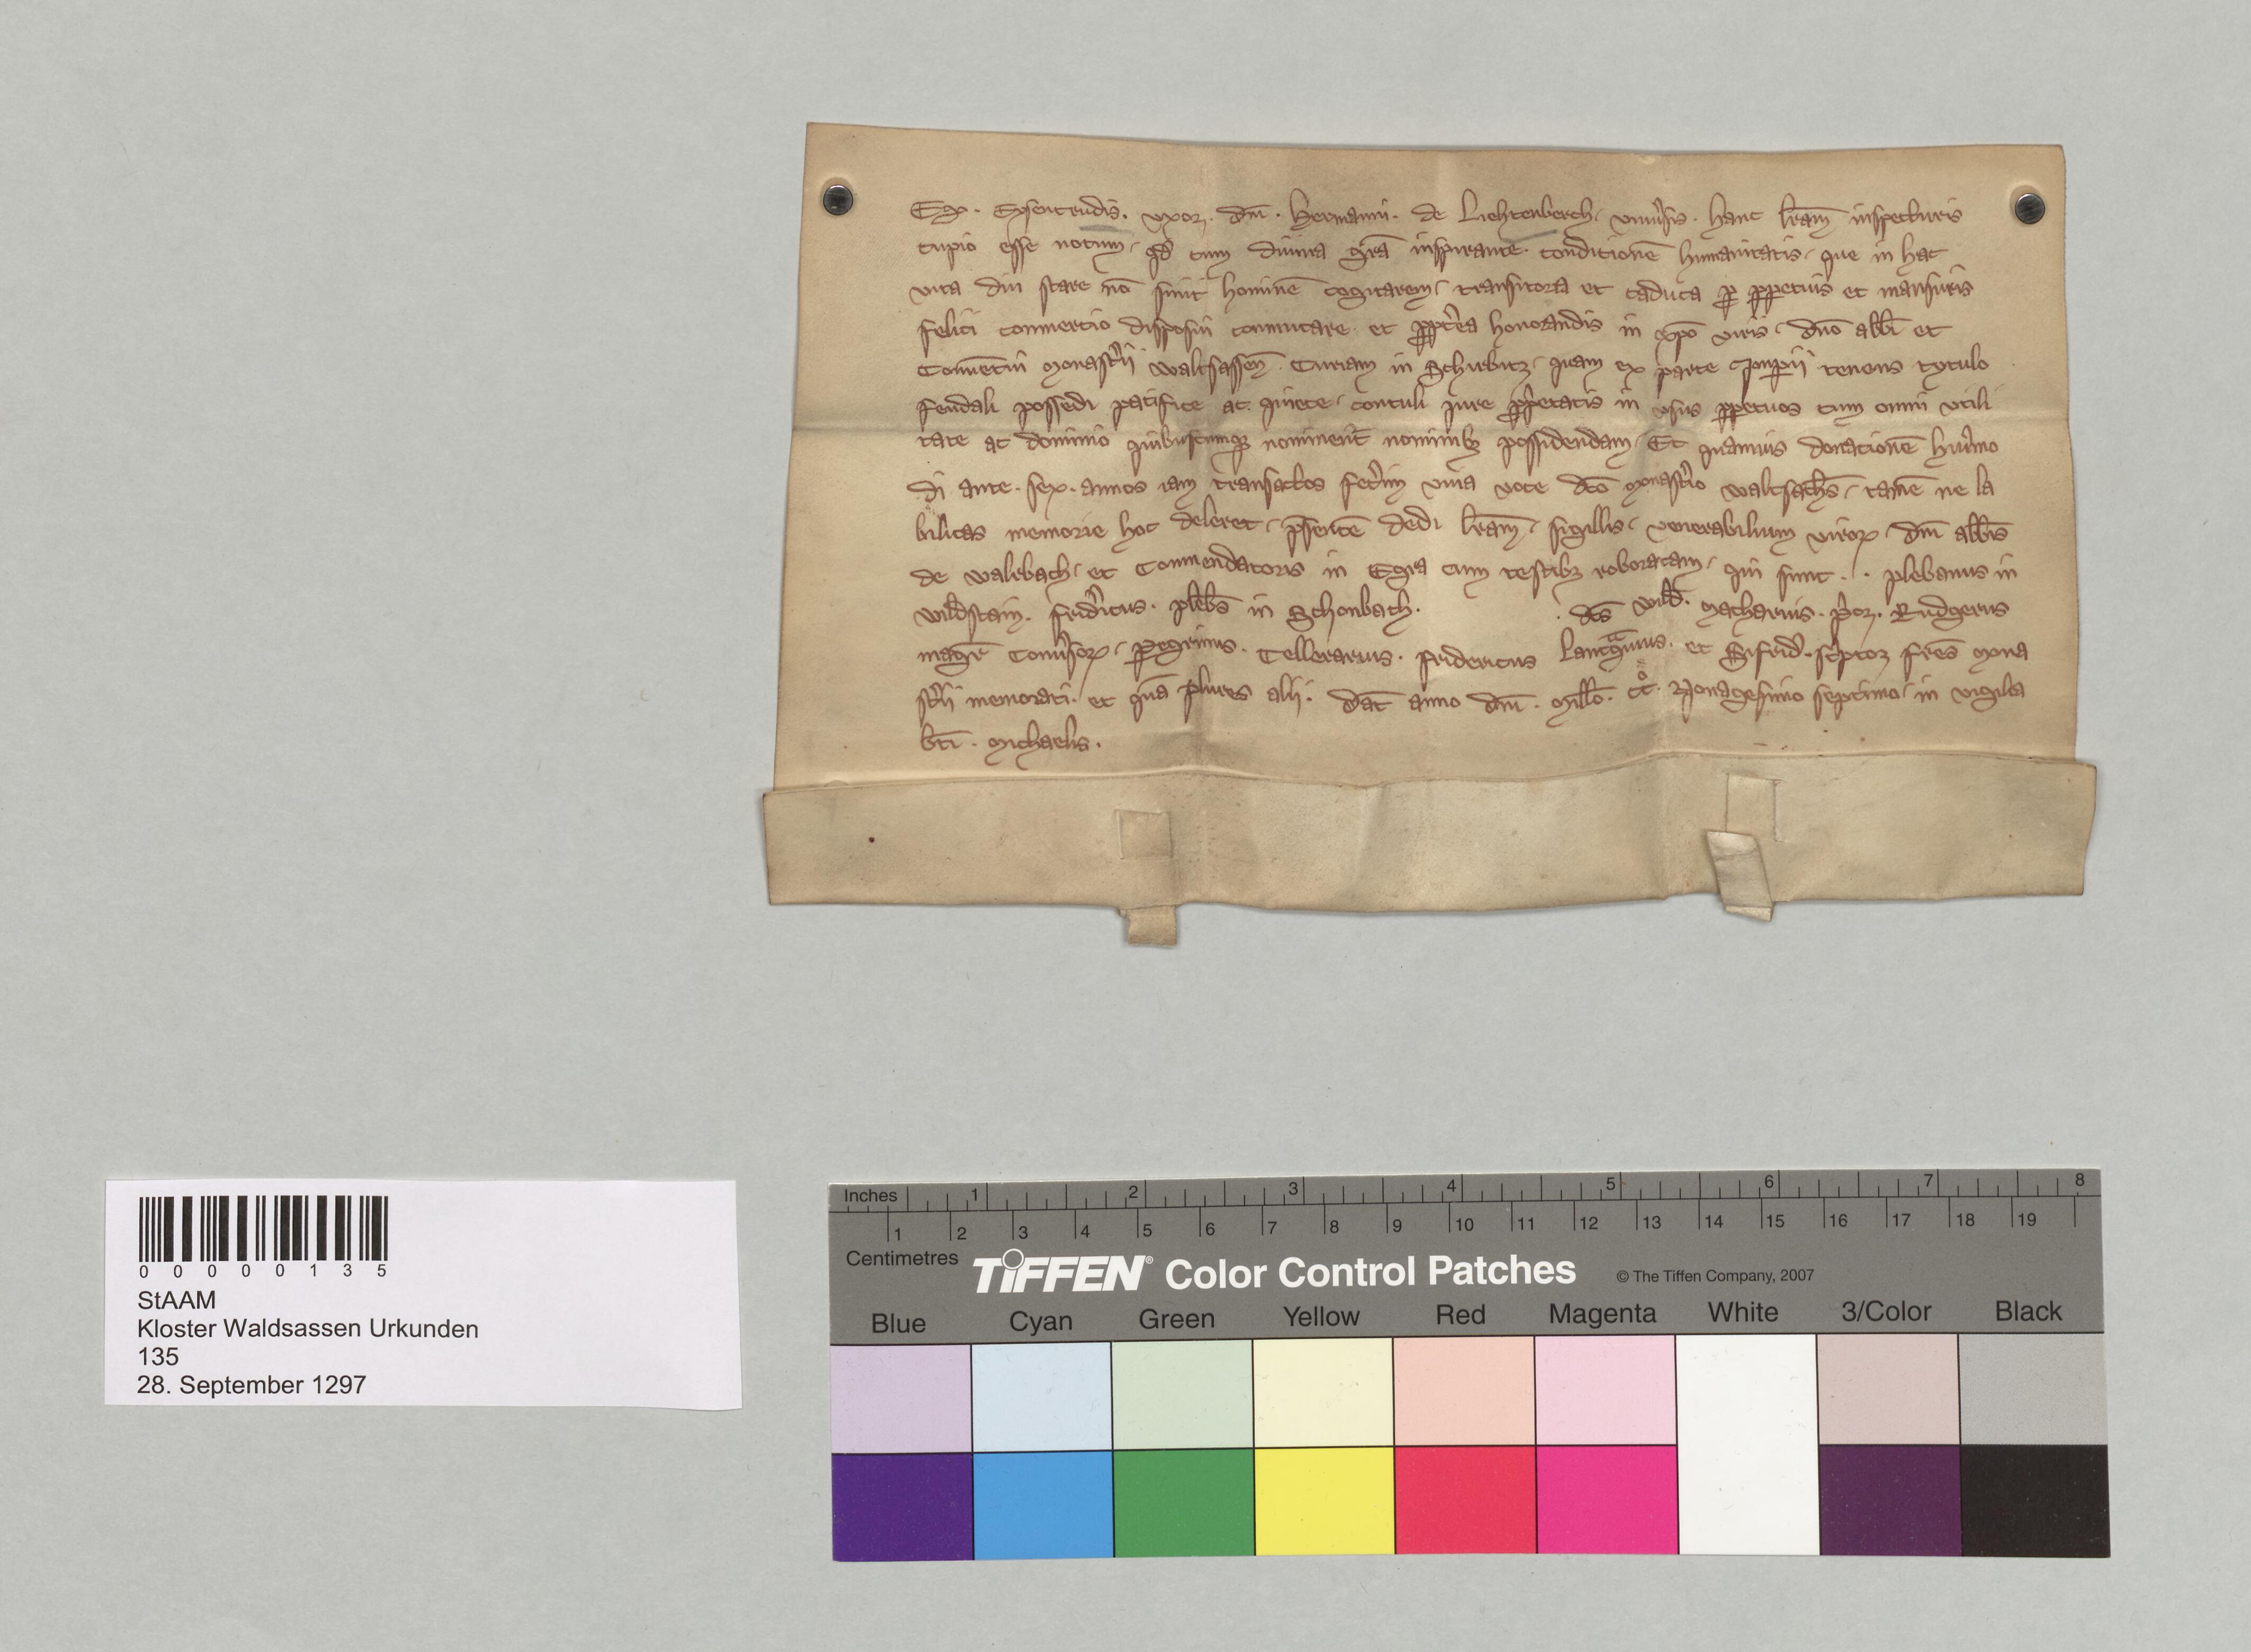 Ego. Eysentrudis. vxor. dn̄i. Hermanni. de Liehtenberch, vniu͛sis. hanc l̄ram inspecturis
cupio esse notum, qd̛ cum diuina gr̄a inspirante. conditionē humanitatis, que in hac
vita diu stare nō sinit hominē cogitarem, transitoria et caduca ꝓ ꝑpetuis et mansuris
felici commercio disposui conmutare. et ꝓpt͛ea honorandis in xp̄o viris, dn̄o abb̄i et
Conuētui Monast͛ii waltsassen̄. Curiam in Schirbitz, quam ex parte Jmꝑii tenens tytulo
feudali possedi pacifice ac quiete, contuli iure ꝓp͛etatis in vsus ꝑpetuos cum omni vtili
tate ac dominio quibuscumqꝫ nominent̄ nominibꝫ possidendam, Et quamuis donationē hui͛mo
di ante. sex. annos iam transactos fec͛im viua voce dc̄o Monast͛io waltsach̄s, tamē ne la
bilitas memorie hoc deleret, p̄sentē dedi l̄ram, sigillis, venerabilium viroꝝ, dn̄i abb̄is
de walrbach, et Commendatoris in Egra cum testibꝫ roboratam, qui sunt. . plebanus in
wild̄stain. frid͛icus. pleb̄s in Schonbach. . dc̄s wild̄. Matharius. p͛or. Rudgerus
maḡr Conu͛soꝝ, ꝑegrinus. Cellerarius. fridericus Lantḡuius. et Sifrid͛. sc͛ptor fr̄es Mona
st͛ii memorati. et qu̅a plures alij. Dat̄ anno dn̄i. Mill̄o. cc̊. Nonagesimo septimo, in vigilia
bt̄i. Michaelis.
0 0 0 0 0 1 3 5
StAAM
Kloster Waldsassen Urkunden
135
28. September 1297
Inches 1 2 3 4 5 6 7 8
1 2 3 4 5 6 7 8 9 10 11 12 13 14 15 16 17 18 19
Centimetres
TIFFEN® Color Control Patches © The Tiffen Company, 2007
Blue Cyan Green Yellow Red Magenta White 3/Color Black